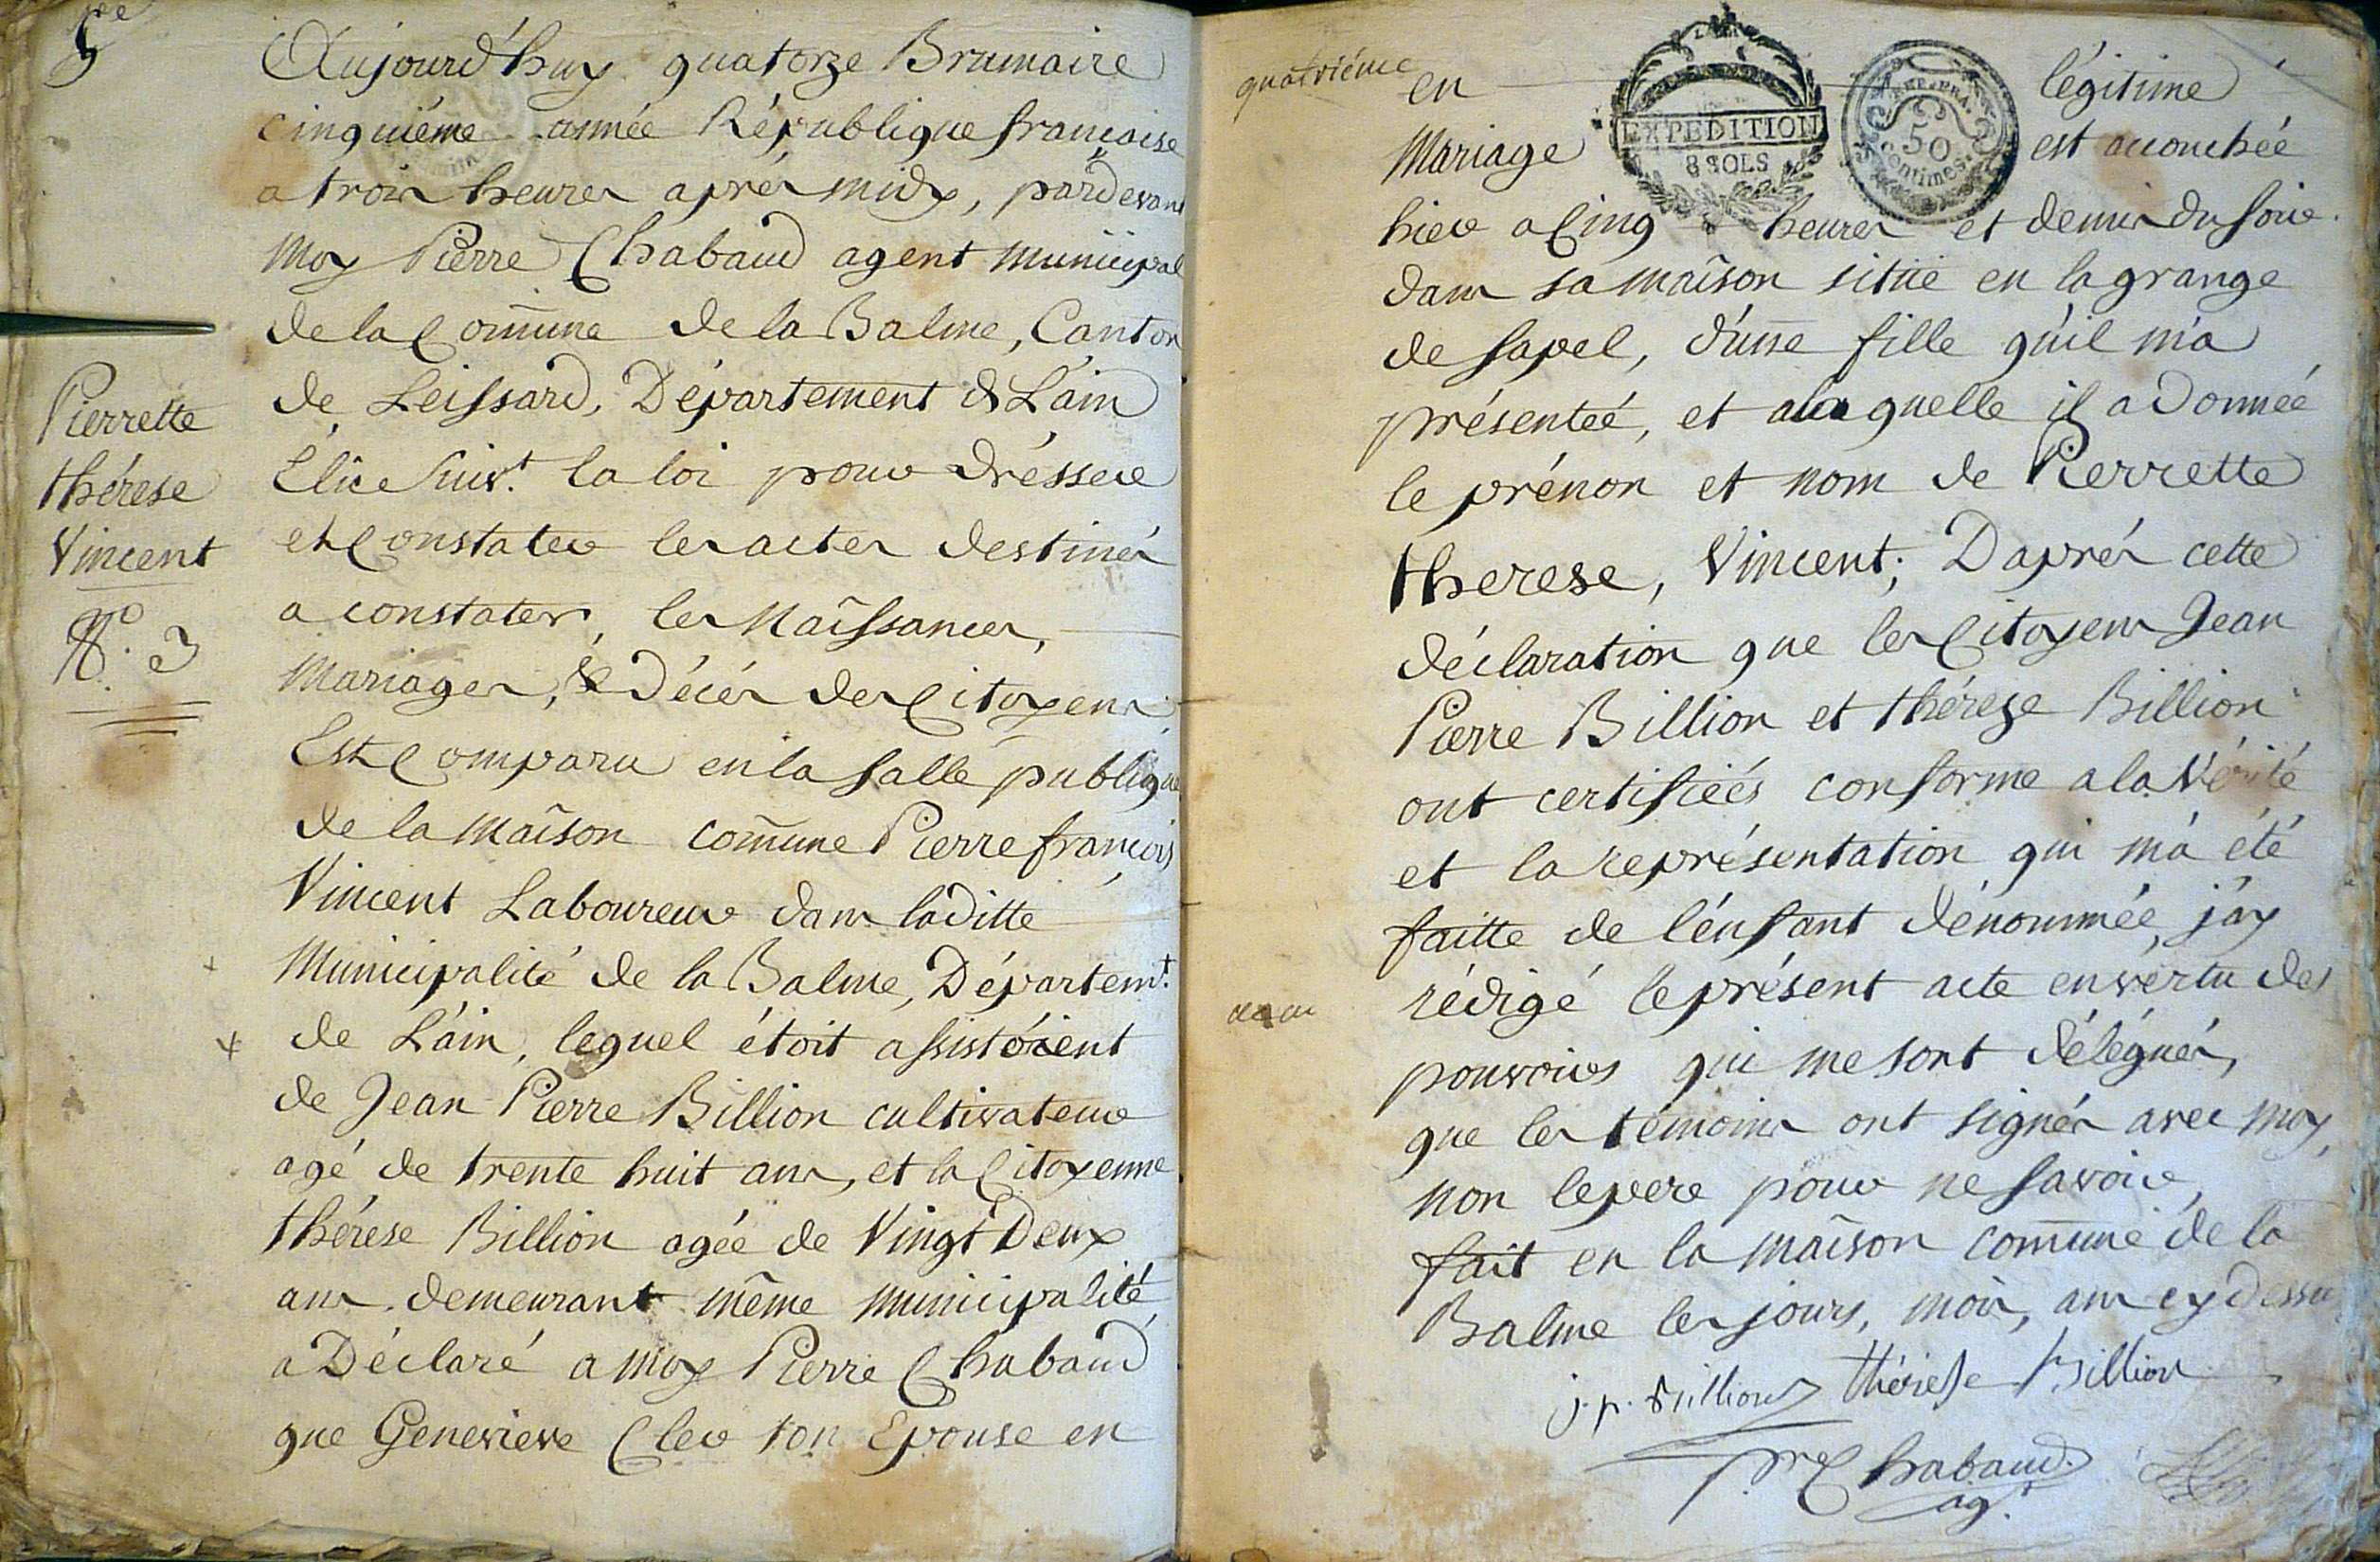 Aujourd'huy quatorze Brumaire
cinquiéme année République francaise
a trois heures aprés midy, pardevant
Moy Pierre Chabaud agent municipal
de la Commune de la Balme, Canton
de Leissard, Département de L'ain
Élu Suiv.t la loi pour drésser
et Constater les actes destinés
a constater, les Naissances,
Mariages, & Décés des Citoyens
Est Comparu en la Salle publique
de la maison com̄une Pierre françois
Vincent Laboureur dans laditte
Municipalité de la Balme, Départem.t
de L'ain, lequel étoit assistóient
de Jean Pierre Billion cultivateur
agé de trente huit ans, et la Citoyenne
thérese Billion agée de Vingt Deux
ans demeurant même municipalité
a Déclaré a moy Pierre Chabaud
que Genevieve Cler son Epouse en
Pierrette
thérese
Vincent
N.o 3
quatriéme
en légitime
Mariage est accouchéé
hier a Cinq heures et demis du soir
dans sa maison situé en la grange
de Sapel, d'une fille qu'il m'a
présenteé, et a laquelle il a donnéé
le prénon et nom de Pierrette
therese, Vincent; D'aprés cette
déclaration que les Citoyens Jean
Pierre Billion et thérese Billion
ont certifiéés conforme a la Vérité
et la représentation qui m'a été
faitte de l'énfant dénommée, j'ay
rédigé le présent acte en vértu des
pouvoirs qui me sont délégués,
que les témoins ont signés avec moy,
non le pere pour ne Savoir,
fait en la maison com̄une de la
Balme les jours, mois, ans cy dessu
j. p. Billion thérése Billion
pre Chabaud.
ag.t
EXPEDITION
8 SOLS
REP. FRA.
50
centimes.